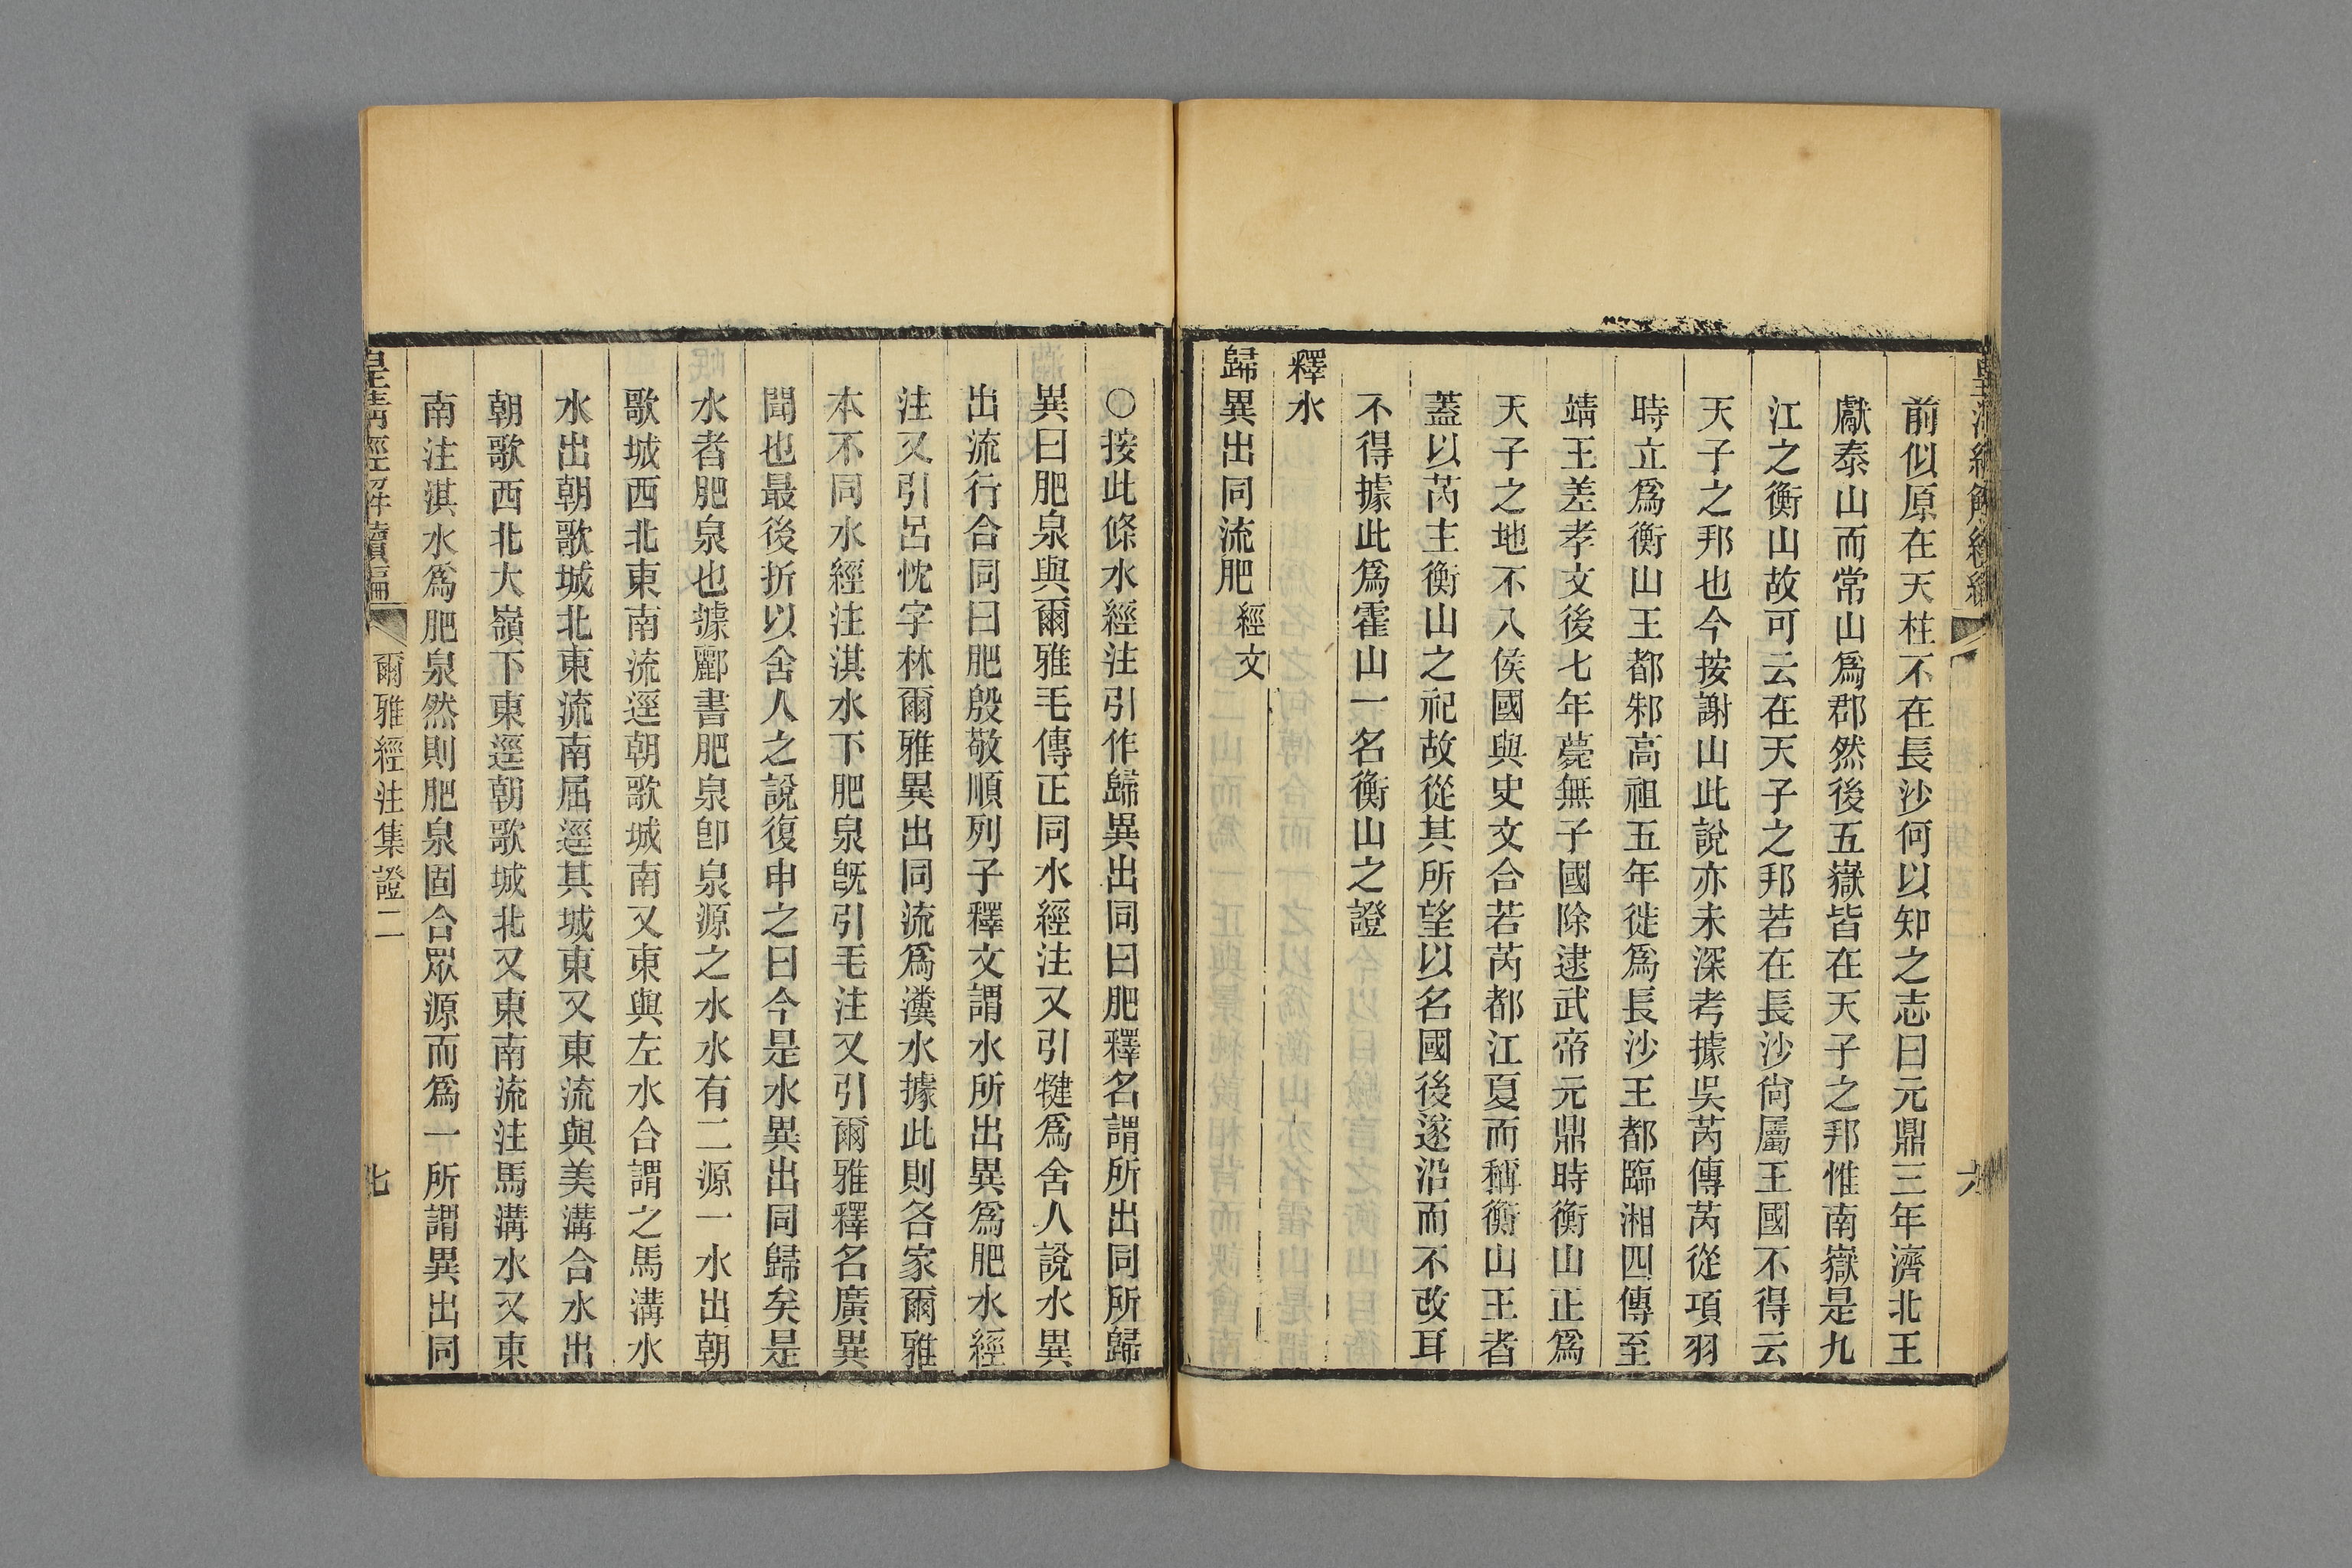 前似原在天柱不在長沙何以知之志曰元鼎三年濟北王
獻泰山而常山爲郡然後五嶽皆在天子之邦惟南嶽是九
江之衡山故可云在天子之邦若在長沙尙屬王國不得云
天子之邦也今按謝山此說亦未深考據吳芮傳芮從項羽
時立爲衡山王都邾高祖五年徙爲長沙王都臨湘四傳至
靖王差孝文後七年薨無子國除逮武帝元鼎時衡山正爲
天子之地不入侯國與史文合若芮都江夏而稱衡山王者
蓋以芮主衡山之祀故從其所望以名國後遂沿而不改耳
不得據此爲霍山一名衡山之證
釋水
歸異出同流肥 經文
〇按此條水經注引作歸異出同曰肥釋名謂所出同所歸
異曰肥泉與爾雅毛傳正同水經注又引犍爲舍人說水異
出流行合同曰肥殷敬順列子釋文謂水所出異爲肥水經
注又引呂忱字林爾雅異出同流爲瀵水據此則各家爾雅
本不同水經注淇水下肥泉旣引毛注又引爾雅釋名廣異
聞也最後折以舍人之說復申之曰今是水異出同歸矣是
水者肥泉也據酈書肥泉卽泉源之水水有二源一水出朝
歌城西北東南流逕朝歌城南又東與左水合謂之馬溝水
水出朝歌城北東流南屈逕其城東又東流與美溝合水出
朝歌西北大嶺下東逕朝歌城北又東南流注馬溝水又東
南注淇水爲肥泉然則肥泉固合眾源而爲一所謂異出同
皇淸經解續編
爾雅經注集證二
七